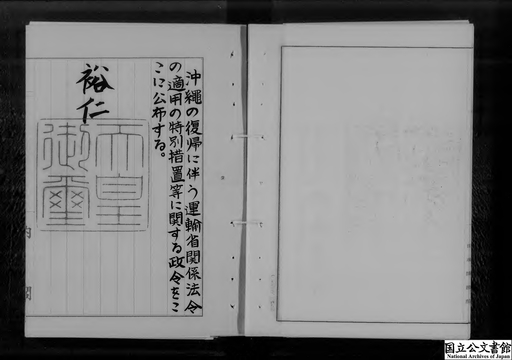 沖繩の復帰に伴う運輸省関係法令
の適用の特別措置等に関する政令をこ
こに公布する。
裕仁
天皇
御璽
内
閣
国立公文書館
National Archives of Japan